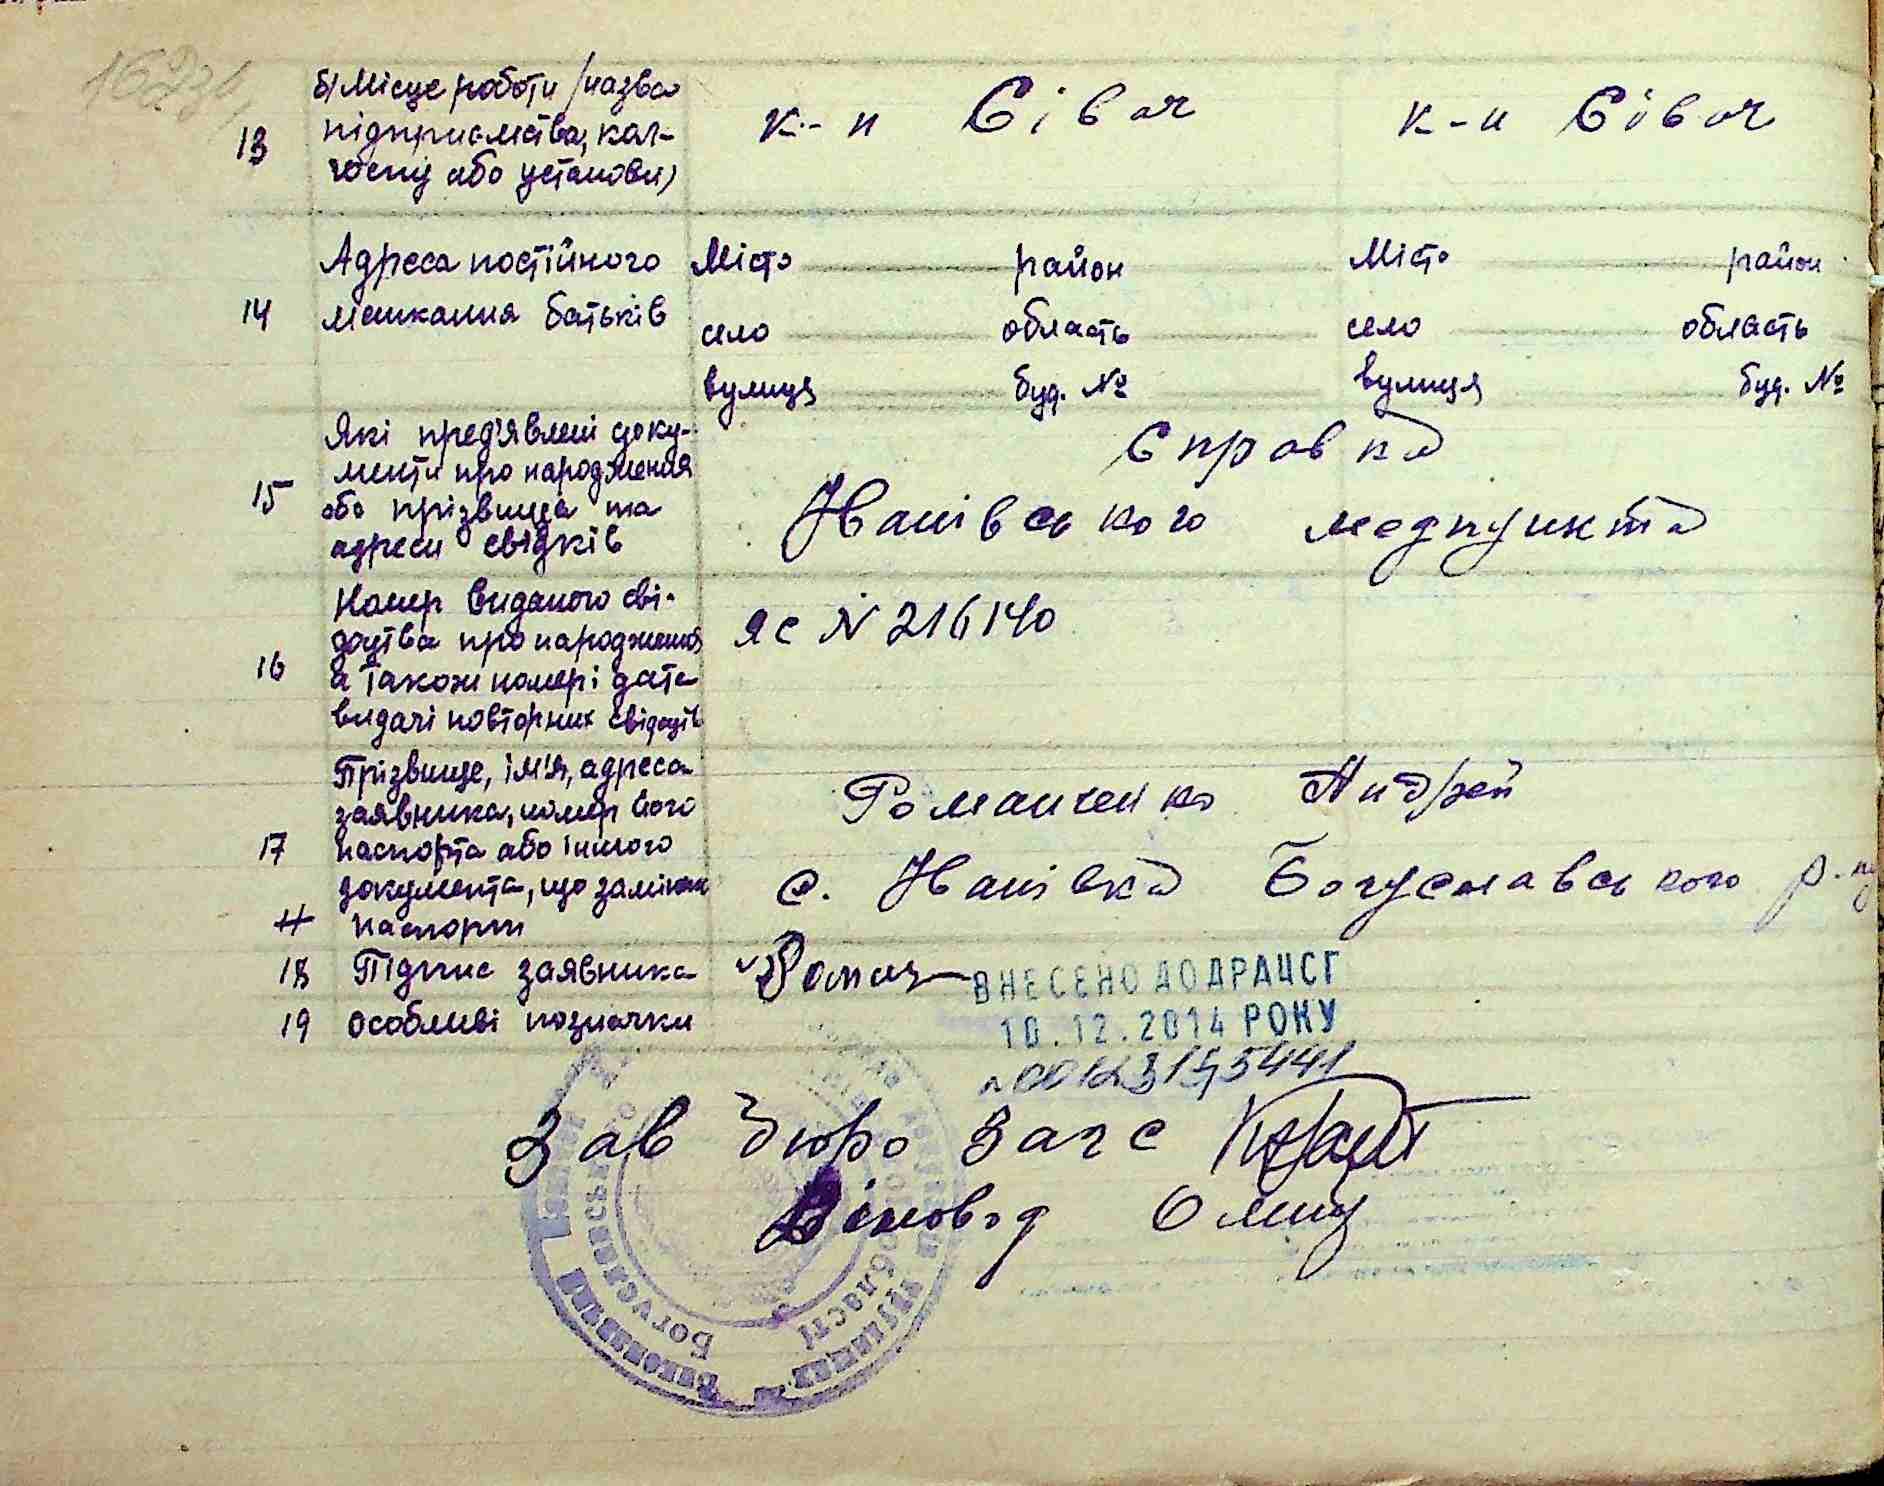 1623
13 б) Місце роботи /назва к-п Сівач к-п Сівач
підприємства, кол-
госпу або установи)
14 Адреса постійного Місто район Місто район
мешкання батьків село область село область
вулиця буд. № вулиця буд. №
15 Які пред'явлені доку- Справка
менти про народження
або прізвища та Іванівського медпункта
адреси свідків
16 Номер виданого сві- ЯС № 216140
доцтва про народження
а також номері дата
видачі повторних свідоцтв
17 Прізвище, ім'я, адреса Романченко Андрей
заявника, номер його
паспорта або іншого
документа, що замінює с. Іванівка Богуславського р-ну
паспорт
18 Підпис заявника Роман
19 Особливі позначки
ВНЕСЕНО ДО ДРАЦСГ
10.12.2014 РОКУ
№00123155441
Зав Бюро Загс
Діловод
Виконавчий
Богуславськ
області